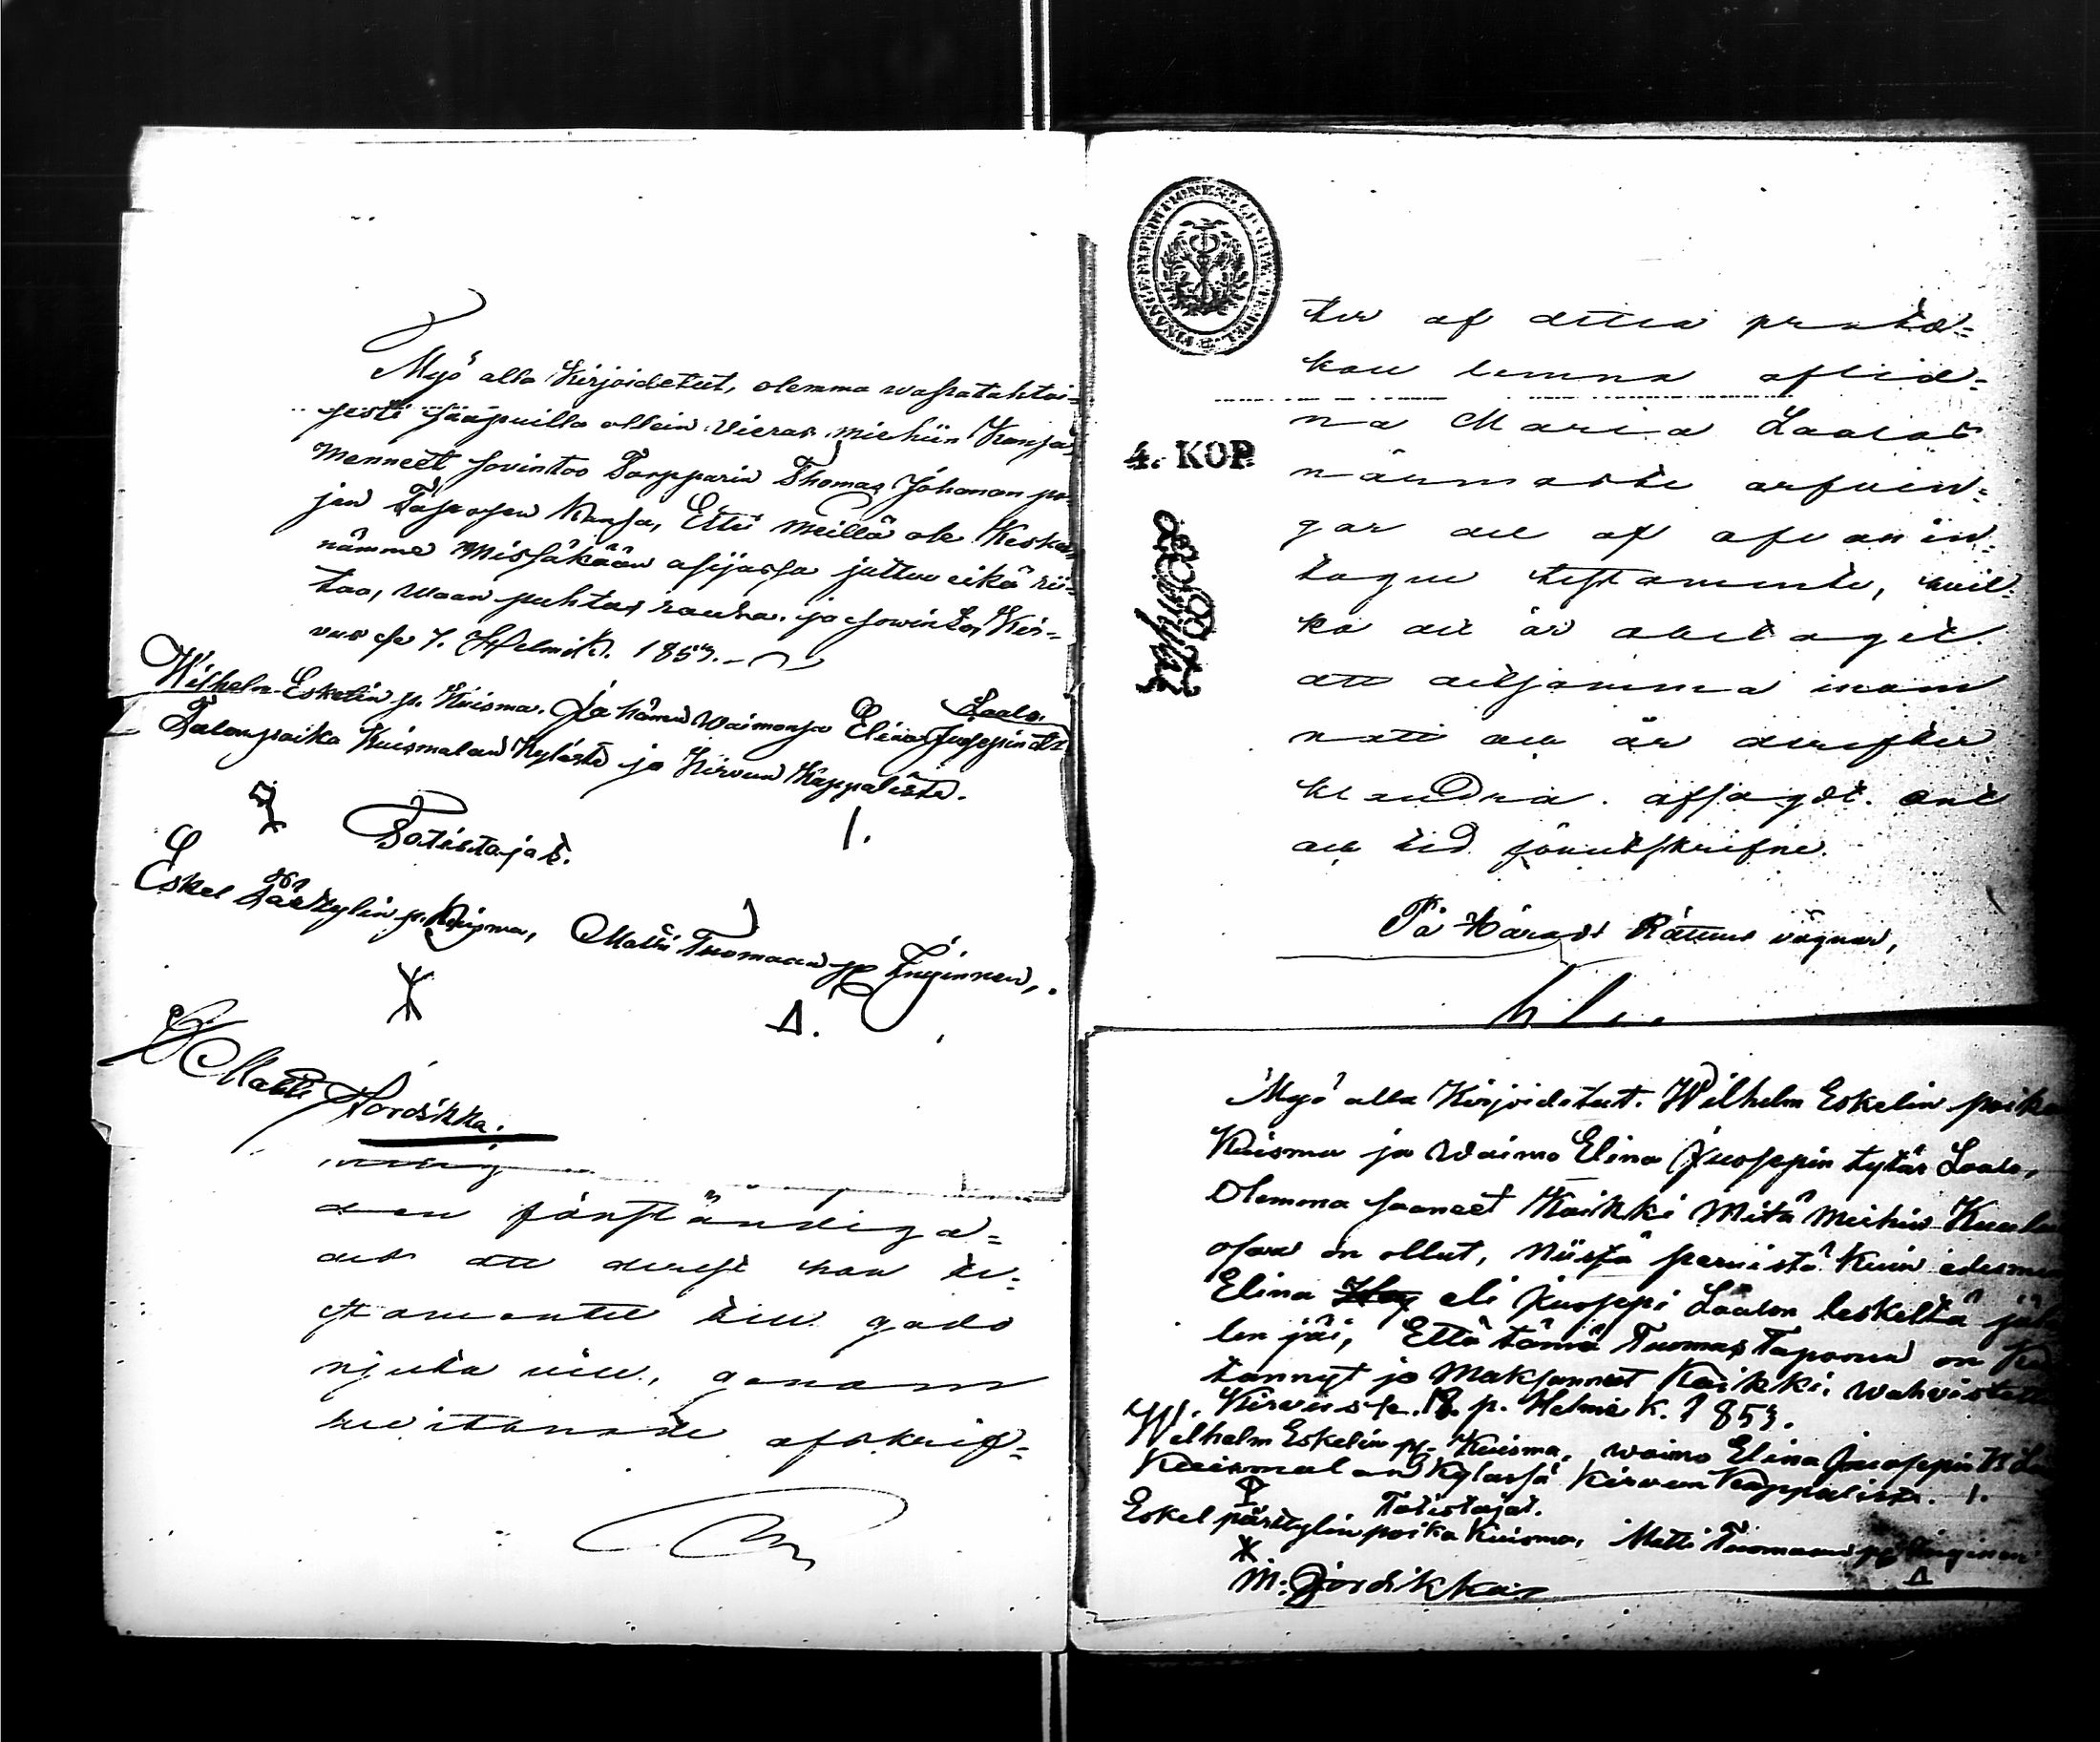 Myö alla Kirjoidetut, olemma wapatahtoi=
sesti saapuilla ollein Vieras miehiin Kansa,
Menneet sovintoo Torpparin Thomas Johanan po
jan Taposen Kansa, Ettei meillä ole Keske
nämme Missäkään asijassa juttuu eikä rii=
taa, waan puhtas rauha ja sowinto, Kir=
vus se 7. Helmik. 1853.
Wilhelm Eskelin p. Kuisma. Ja hänen Waimonsa Elina Juosepin tr
Laalo.
Talonpoika Kuismalan Kylästä ja Kirvun Kappalista.
1.
Totistajat.
Eskel Pärttylin p. Kuisma, Matti Tuomaan p. Inginen,
Matti Jordikka.
den förständiga=
det att derest han te=
stamentet till godo
njuta vill, genom
bevitnade afskrif=
ter af detta proto=
koll lemna aflid=
na Maria Laalos
närmaste arfvin=
gar del af ofvan in=
tagne testamente, hvil=
ka det är obetaget
att detsamma inom
natt och år derefter
klandra. afsagdt. ort
och tid förutskrifne.
På Härads Rättens vägnar,
4. KOP.
Myö alla Kirjoidetut. Wilhelm Eskelin poika
Kuisma ja Waimo Elina Juosepin tytär Laalo,
Olemma saaneet Kaikki Mitä meihin Kuulu
osaa on ollut, Niistä peruista Kuin edesmen
Elina eli Juoseppi Laalon leskeltä jäl
len jäi, Että tämä Tuomas Taponen on Kus
tannyt ja Maksannut Kaikki, wahvistetta
Kirvus se. 18. p. Helmik. 1853.
Wilhelm Eskelin p. Kuisma, waimo Elina Juosepin tr
Kuismalan Kylässä Kirvun Kappalissa. 1.
Totistajat.
Eskel pärttylin poika Kuisma, Matti Tuomaan p. Inginen
M. Jordikka